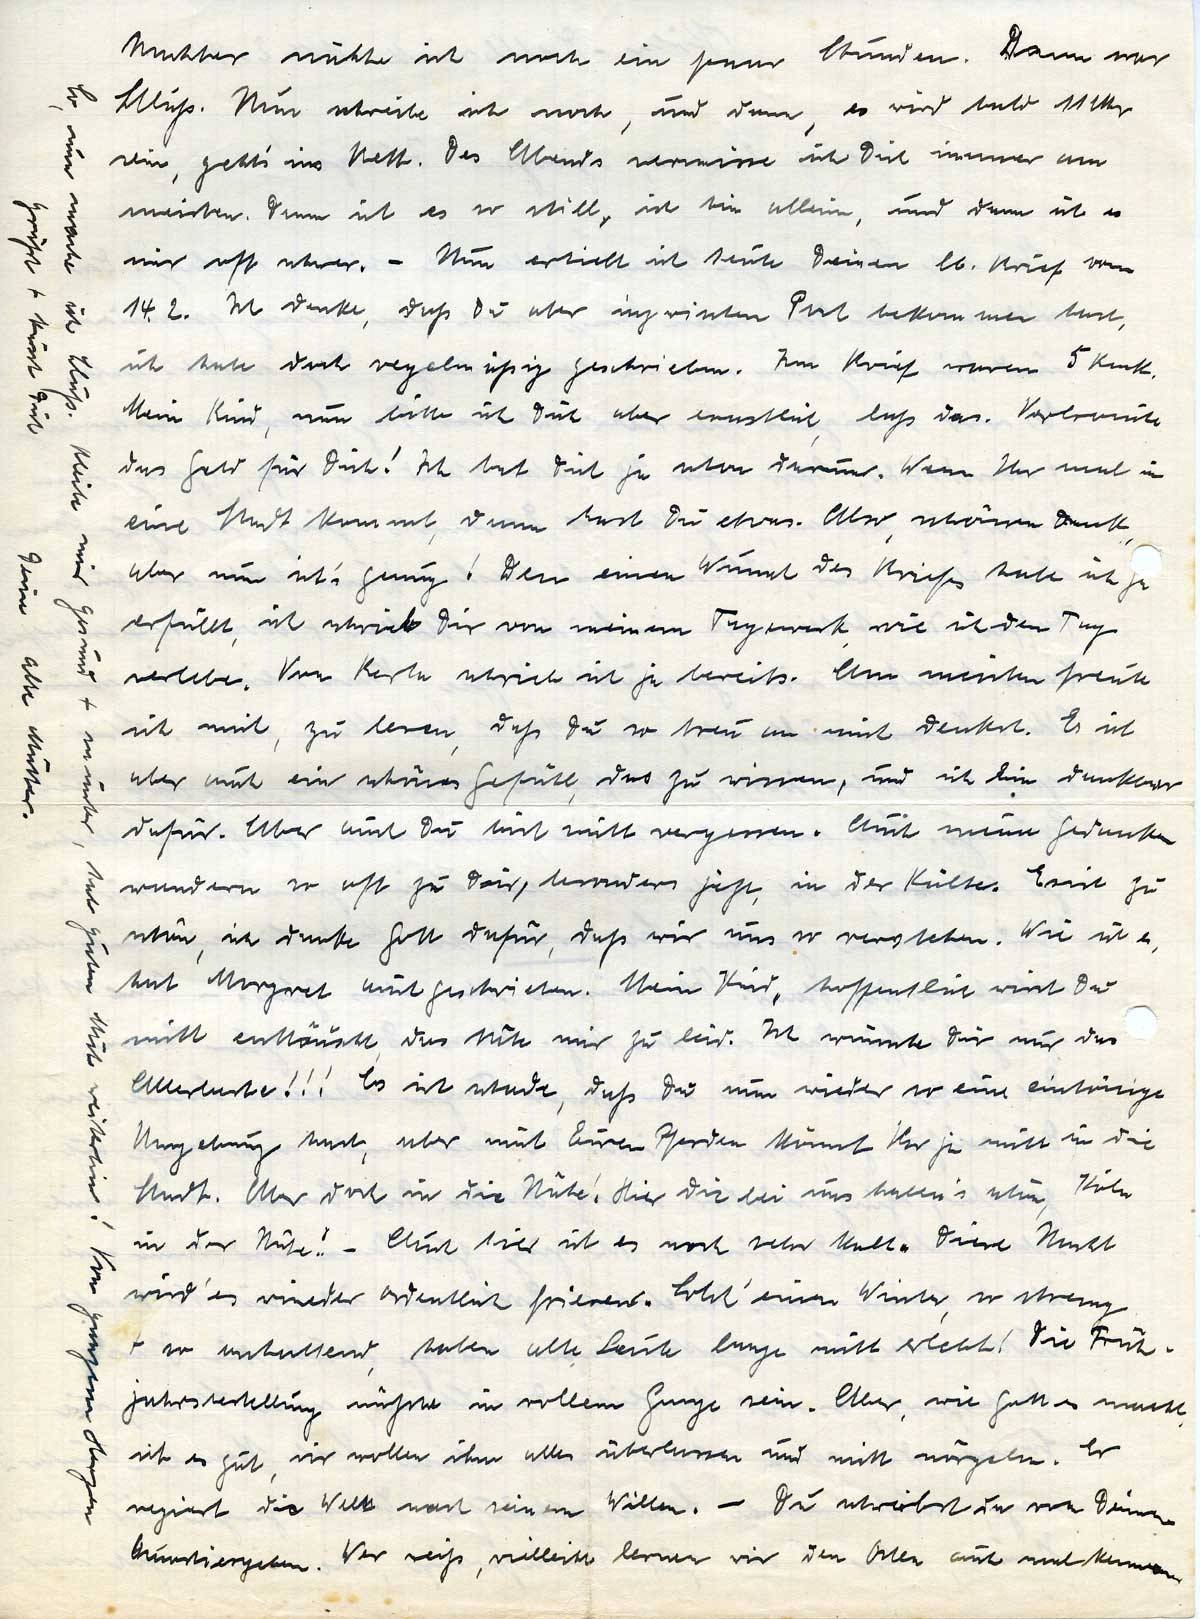 Nachher nähte ich noch ein paar Stunden. Dann war
Schluß. Nun schreibe ich noch, und dann, es wird bald 11 Uhr
sein, geht's ins Bett. Des Abends vermisse ich Dich immer am
meisten. Dann ist es so still, ich bin allein, und dann ist es
mir oft schwer. – Nun erhielt ich heute Deinen lb. Brief vom
14.2. Ich denke, daß Du aber inzwischen Post bekommen hast,
ich habe doch regelmäßig geschrieben. Im Brief waren 5 Mark.
Mein Kind, nun bitte ich Dich aber ernstlich, laß das. Verbrauche
das Geld für Dich! Ich bat Dich ja schon darum. Wenn Ihr mal in
eine Stadt kommt, dann hast Du etwas. Also, schönen Dank,
aber nun ist's genug! Den einen Wunsch des Briefes habe ich ja
erfüllt, ich schrieb Dir von meinem Tagewerk, wie ich den Tag
verlebe. Von Karla schrieb ich ja bereits. Am meisten freute
ich mich, zu lesen, daß Du so treu an mich denkst. Es ist
aber auch ein schönes Gefühl, das zu wissen, und ich bin dankbar
dafür. Aber auch Du bist nicht vergessen. Auch meine Gedanken
wandern so oft zu Dir, besonders jetzt, in der Kälte. Es ist zu
schön, ich danke Gott dafür, daß wir uns so verstehen. Wie ist es,
hat Margret auch geschrieben. Mein Kind, hoffentlich wirst Du
nicht enttäuscht, das täte mir zu leid. Ich wünsche Dir nur das
Allerbeste!!! Es ist schade, daß Du nun wieder so eine eintönige
Umgebung hast, aber mit Euren Pferden könnt Ihr ja nicht in die
Stadt. Aber doch in die Nähe! Hier die bei uns haben's schön, Köln
in der Nähe! – Auch hier ist es noch sehr kalt. Diese Nacht
wird es wieder ordentlich frieren. Solch' einen Winter, so streng
+ so anhaltend, haben alte Leute lange nicht erlebt! Die Früh-
jahrsbestellung müßte in vollem Gange sein. Aber, wie Gott es macht,
ist es gut, wir wollen ihm alles überlassen und nicht nörgeln. Er
regiert die Welt nach seinem Willen. – Du schreibst da von Deinen
Wer weiß, vielleicht lernen wir den Osten auch mal kennen
So, nun mache ich Schluß. Bleibe mir gesund + munter, hab guten Mut weiterhin! Von ganzem Herzen
grüßt + küsst Dich
Deine alte Mutter.